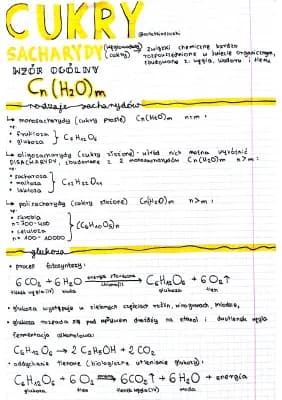 CUKRY
SACHARYDY (węglowodany) (cukry) → związki chemiczne bardzo
rozpowszechnione w świecie organicznym,
zbudowane z: węgla, wodoru i tlenu
WZÓR OGÓLNY
Cn(H₂O)m
rodzaje sacharydów
↳ monosacharydy (cukry proste) Cn(H₂O)m n=m:
np:
• fruktoza
• glukoza } C₆H₁₂O₆
↳ oligosacharydy (cukry złożone): wśród nich można wyróżnić
DISACHARYDY, zbudowane z 2 monosacharydów Cn(H₂O)m n>m:
np:
• sacharoza
• maltoza
• laktoza } C₁₂H₂₂O₁₁
↳ polisacharydy (cukry złożone) Cn(H₂O)m n>m:
np:
• skrobia
n=300-400
• celuloza
n=100-10000 } (C₆H₁₀O₅)n
glukoza
• proces fotosyntezy:
6CO₂ + 6H₂O energia słoneczna chlorofil → C₆H₁₂O₆ + 6O₂↑
tlenek węgla(IV) woda glukoza tlen
• glukoza występuje w zielonych częściach roślin, winogronach, miodzie,
• glukoza rozpada się pod wpływem drożdży na etanol i dwutlenek węgla
fermentacja alkoholowa:
C₆H₁₂O₆ → 2C₂H₅OH + 2CO₂
• oddychanie tlenowe (biologiczne utlenianie glukozy):
C₆H₁₂O₆ + 6O₂ → 6CO₂↑ + 6H₂O + energia
glukoza tlen tlenek węgla(IV) woda